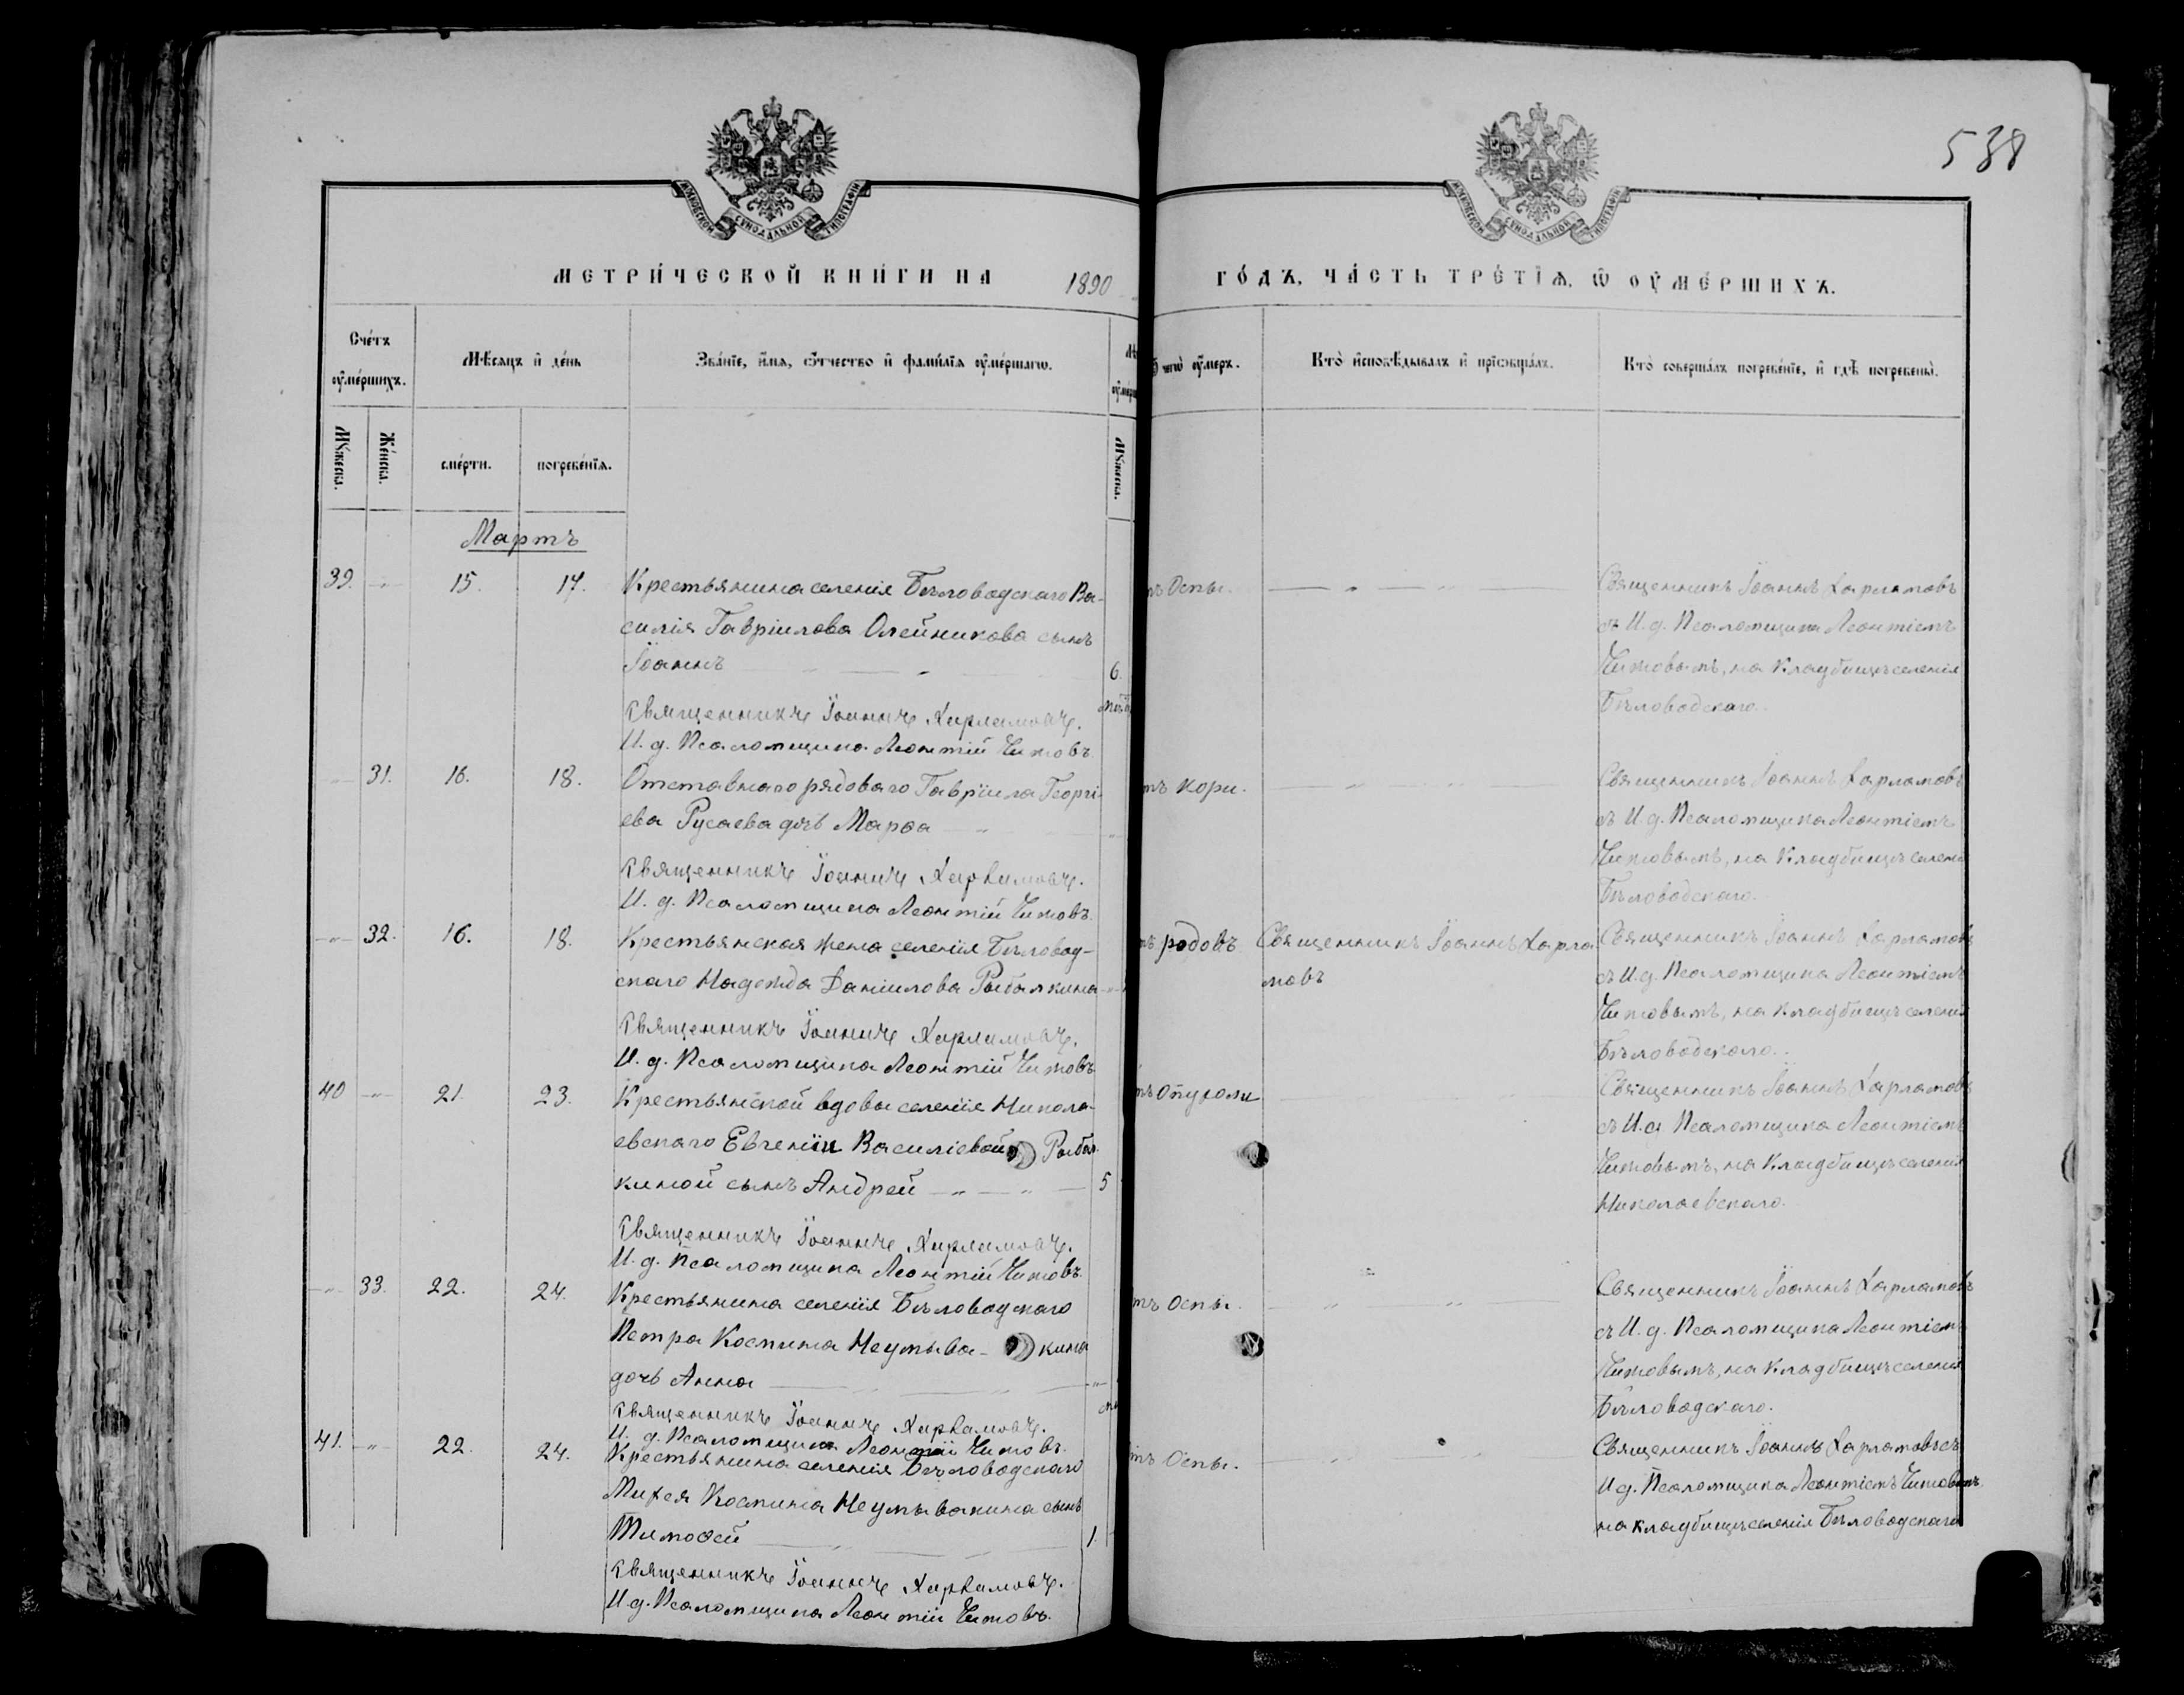 538
МОСКОВСКОЙ СУНОДАЛЬНОЙ ТИПОГРАФІИ
МОСКОВСКОЙ СУНОДАЛЬНОЙ ТИПОГРАФІИ
МЕТРИ́ЧЕСКОЙ КНИ́ГИ НА 1890 ГО́ДЪ, ЧА́СТЬ ТРЕ́ТІѦ, Ѿ ОУ҆МЕ́РШИХЪ.
Сче́тъ
оу҆ме́ршихъ.
Мѣ́сяцъ и҆ де́нь
Зва́нїе, и҆́мя, ѻ҆́тчество и҆ фами́лїя оу҆ме́ршагѡ.
чегѡ̀ оу҆́меръ.
Кто̀ и҆сповѣ́дывалъ и҆ прїѡбща́лъ.
Кто̀ соверша́лъ погребе́нїе, и҆ гдѣ̀ погребены̀.
Мꙋ́жеска.
Же́нска.
сме́рти.
погребе́нїѧ.
Мꙋ́жеска.
Мартъ
39. 15. 17. Крестьянина селенія Бѣловодскаго Ва-
силія Гавріилова Олейникова сынъ
Іоаннъ 6.
Священникъ Іоаннъ Харламовъ.
И. д. Псаломщика Леонтій Титовъ.
Оспы.
Священникъ Іоаннъ Харламовъ
съ И. д. Псаломщика Леонтіемъ
Титовымъ, на кладбищѣ селенія
Бѣловодскаго.
31. 16. 18. Отставнаго рядоваго Гавріила Георгі-
ева Русаева дочь Марѳа
Священникъ Іоаннъ Харламовъ.
И. д. Псаломщика Леонтій Титовъ.
тъ кори.
Священникъ Іоаннъ Харламовъ
съ И. д. Псаломщика Леонтіемъ
Титовымъ, на кладбищѣ селені
Бѣловодскаго.
32. 16. 18. Крестьянская жена селенія Бѣловод-
скаго Надежда Даніилова Рыбалкина
Священникъ Іоаннъ Харламовъ.
И. д. Псаломщика Леонтій Титовъ
родовъ
Священникъ Іоаннъ Харла
мовъ
Священникъ Іоаннъ Харламовъ
съ И. д. Псаломщика Леонтіемъ
Титовымъ, на кладбищѣ селенія
Бѣловодскаго.
40 21. 23. Крестьянской вдовы селенія Никола-
евскаго Евгеніи Васильевой Рыбал
киной сынъ Андрей 5
Священникъ Іоаннъ Харламовъ.
И. д. Псаломщика Леонтій Титовъ.
опухоли
Священникъ Іоаннъ Харламовъ
съ И. д Псаломщика Леонтіемъ
Титовымъ, на кладбищѣ селенія
Николаевскаго.
33. 22. 24. Крестьянина селенія Бѣловодскаго
Петра Космина Неумыва- кина
дочь Анна
Священникъ Іоаннъ Харламовъ.
И. д. Псаломщика Леонтій Титовъ.
тъ Оспы.
Священникъ Іоаннъ Харламовъ
съ И. д. Псаломщика Леонтіем
Титовымъ, на кладбищѣ селенія
Бѣловодскаго.
41. 22. 24. Крестьянина селенія Бѣловодскаго
Михея Космина Неумывакина сынъ
Тимоѳей 1.
Священникъ Іоаннъ Харламовъ.
И. д. Псаломщика Леонтій Титовъ.
тъ Оспы.
Священникъ Іоаннъ Харламовъ съ
И д. Псаломщика Леонтіемъ Титовымъ
на кладбищѣ селенія Бѣловодскаго